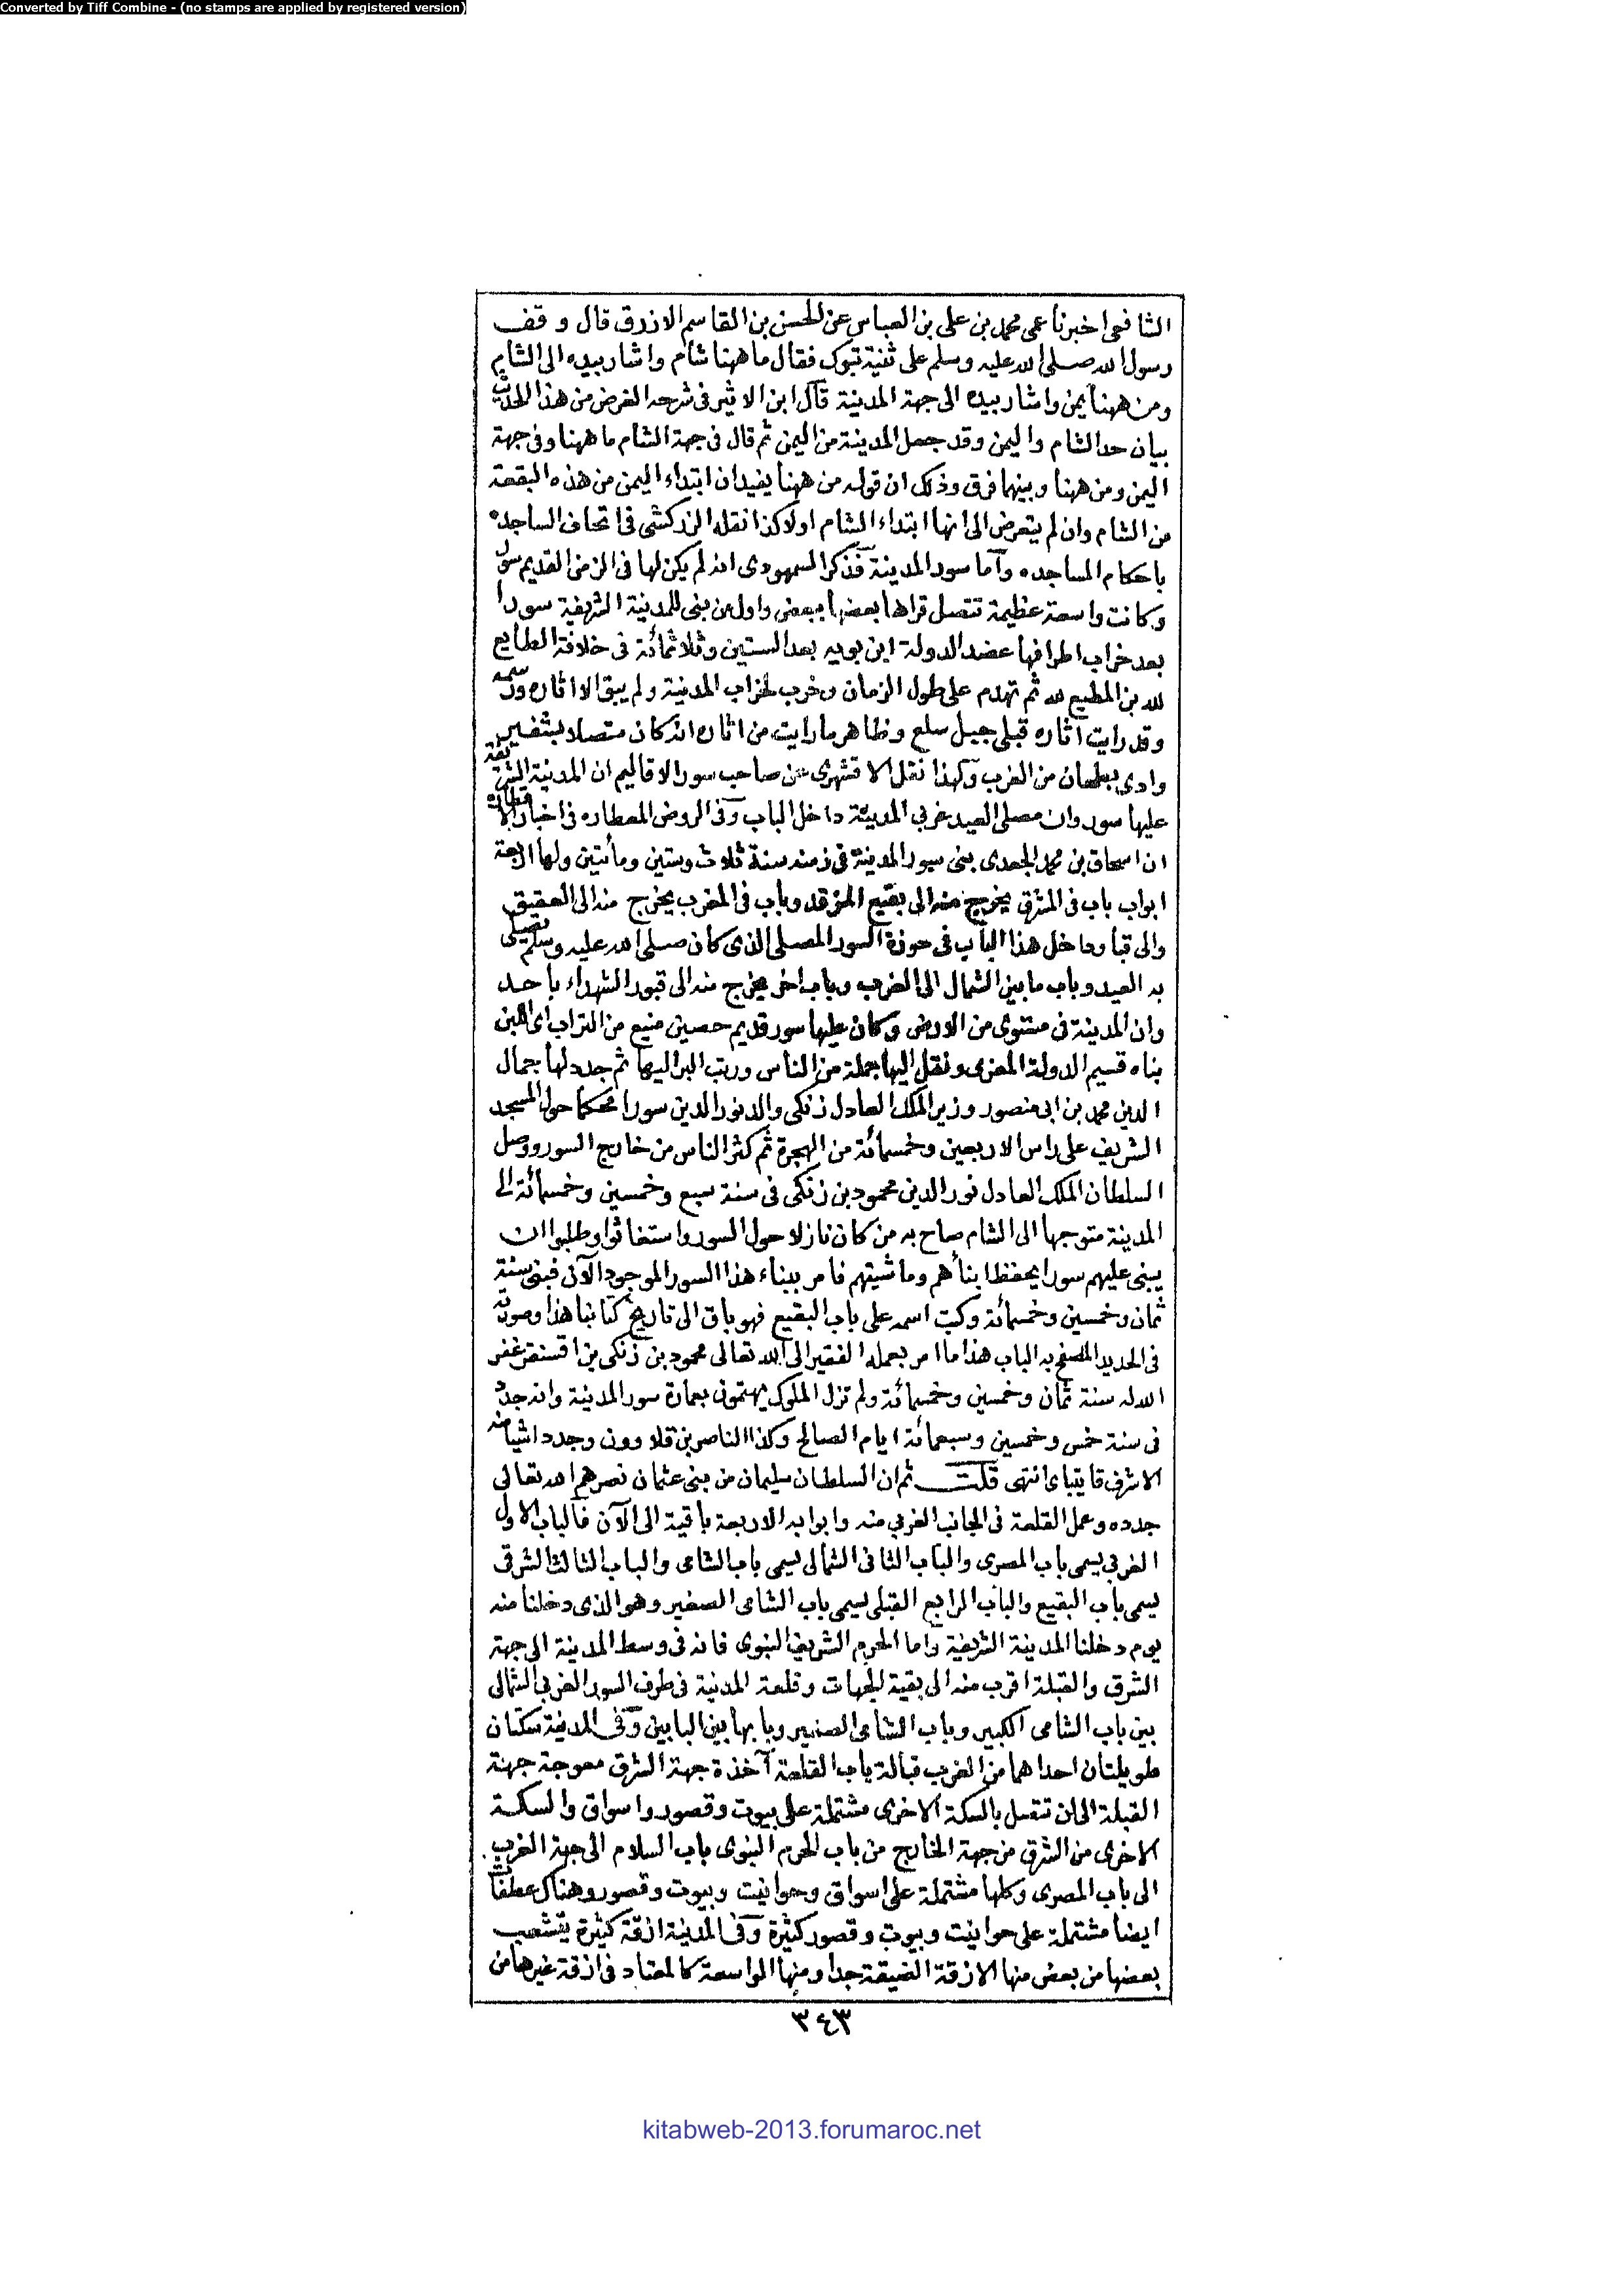 Converted by Tiff Combine - (no stamps are applied by registered version)
الشافعي اخبرنا عمى محمد بن على بن العباس عن الحسن بن القاسم الازرق قال وقف
رسول الله صلى الله عليه وسلم على ثنية تبوك فقال ما ههنا شام واشار بيده الى الشام
ومن ههنا يمن واشار بيده الى جهة المدينة قال ابن الاثير فى شرحه الغرض من هذا الحديث
بيان حد الشام واليمن وقد جعل المدينة من اليمن ثم قال فى جهة الشام ما ههنا وفى جهة
اليمن ومن ههنا وبينهما فرق وذلك ان قوله من ههنا يفيد ان ابتداء اليمن من هذه البقعة
من الشام وان لم يتعرض الى انها ابتداء الشام اولا كذا نقله الزركشى فى اتحاف الساجد ه
باحكام المساجد ه وآما سور المدينة فذكر السمهودى انه لم يكن لها فى الزمن القديم سور
وكانت واسعة عظيمة تتصل قراها بعضها ببعض واول من بنى للمدينة الشريفة سورا
بعد خراب اطرافها عضد الدولة ابن بويه بعد الستين وثلاثمائة فى خلافة الطايع
لله بن المطيع لله ثم تهدم على طول الزمان وخرب لخراب المدينة ولم يبق الا اثاره ورسمه
وقد رايت آثاره قبلى جبل سلع وظاهر ما رايت من اثاره انه كان متصلا بشفير
وادى بطحان من الغرب وكهذا نقل الاقشهرى عن صاحب سور الاقاليم ان المدينة الشريفة
عليها سور وان مصلى العيد غربي المدينة داخل الباب وفى الروض المعطار ه فى اخبار الاقطار ه
ان اسحاق بن محمد الجعدى بنى سور المدينة فى زمنه سنة ثلاث وستين ومأتين ولها اربعة
ابواب باب فى المشرق يخرج منه الى بقيع الغرقد وباب فى المغرب يخرج منه الى العقيق
والى قبا وداخل هذا الباب فى حوزة السور المصلى الذى كان صلى الله عليه وسلم يصلى
به العيد وباب ما بين الشمال الى الغرب وباب اخر يخرج منه الى قبور الشهداء باحد
وان المدينة فى مستوى من الارض وكان عليها سور قديم حصين منيع من التراب اى اللبن
بناه قسيم الدولة المعزى ونقل اليها جملة من الناس ورتب البر اليها ثم جدد لها جمال
الدين محمد بن ابى منصور وزير الملك العادل زنكى والد نور الدين سورا محكما حول المسجد
الشريف على راس الاربعين وخمسمائة من الهجرة ثم كثر الناس من خارج السور ووصل
السلطان الملك العادل نور الدين محمود بن زنكى فى سنة سبع وخمسين وخمسمائة الى
المدينة متوجها الى الشام صاح به من كان نازلا حول السور واستغاثوا وطلبوا ان
يبنى عليهم سورا يحفظ ابناهم وماشيتهم فامر ببناء هذا السور الموجود الآن فبنى سنة
ثمان وخمسين وخمسمائة وكتب اسمه على باب البقيع فهو باق الى تاريخ كتابنا هذا وصورته
فى الحديد المصفح به الباب هذا ما امر بعمله الفقير الى الله تعالى محمود بن زنكى بن اقسنقر غفر
الله له سنة ثمان وخمسين وخمسمائة ولم تزل الملوك يهتمون بعمارة سور المدينة وانه جدد
فى سنة خمس وخمسين وسبعمائة ايام الصالح وكذا الناصر بن قلاوون وجدد اشيا منه
الاشرف قايتباى انتهى قلت ثم ان السلطان سليمان من بنى عثمان نصرهم الله تعالى
جدده وعمل القلعة فى الجانب الغربي منه وابوابه الاربعة باقية الى الآن فالباب الاول
الغربي يسمى باب المصرى والباب الثانى الشمالى يسمى باب الشامى والباب الثالث الشرقى
يسمى باب البقيع والباب الرابع القبلى يسمى باب الشامى الصغير وهو الذى دخلنا منه
يوم دخلنا المدينة الشريفة وآما الحرم الشريف النبوى فانه فى وسط المدينة الى جهة
الشرق والقبلة اقرب منه الى بقية الجهات وقلعة المدينة فى طرف السور الغربي الشمالى
بين باب الشامى الكبير وباب الشامى الصغير وبابها بين البابين وفى المدينة سكتان
طويلتان احداهما من الغرب قبالة باب القلعة آخذة جهة الشرق معوجة جهة
القبلة الى ان تتصل بالسكة الاخرى مشتملة على بيوت وقصور واسواق والسكة
الاخرى من الشرق من جهة الخارج من باب الحرم النبوى باب السلام الى جهة الغرب
الى باب المصرى وكلها مشتملة على اسواق وحوانيت وبيوت وقصور وهناك عطفات
ايضا مشتملة على حوانيت وبيوت وقصور كثيرة وفى المدينة ازقة كثيرة يتشعب
بعضها من بعض منها الازقة الضيقة جدا ومنها الواسعة كالمعتاد فى ازقة غيرها من
٣٤٣
kitabweb-2013.forumaroc.net